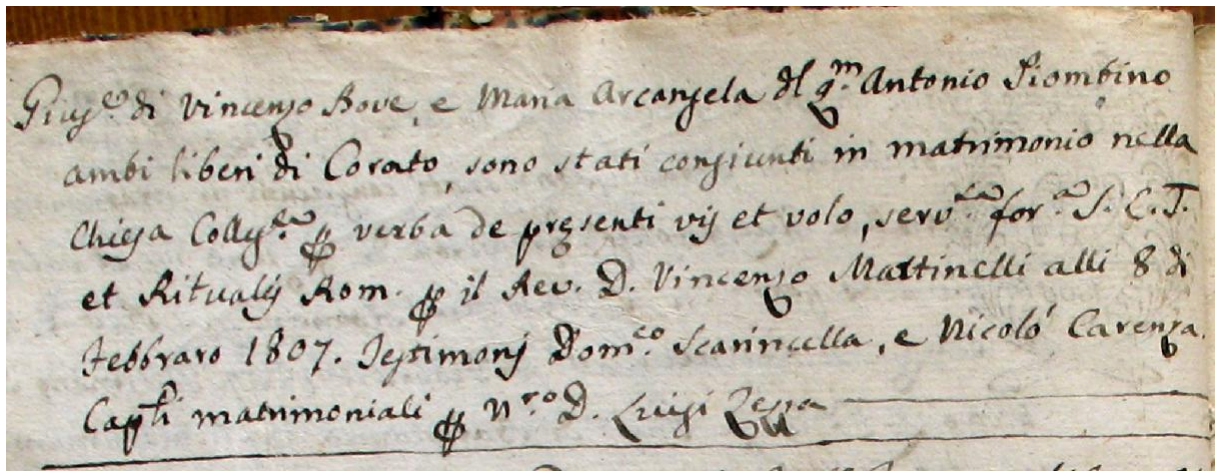 Giuse. di Vincenzo Bove, e Maria Arcangela dl qm. Antonio Piombino
ambi liberi di Corato, sono stati congiunti in matrimonio nella
Chiesa Colleg.ta p verba de presenti vis et volo, serv.ta for.a S. C. T.
et Ritualis Rom. p il Rev. D. Vincenzo Mattinelli alli 8 di
Febbraro 1807. Testimonj Dom.co Scarincella, e Nicolò Carenza.
Capli matrimoniali p N.ro D. Luigi